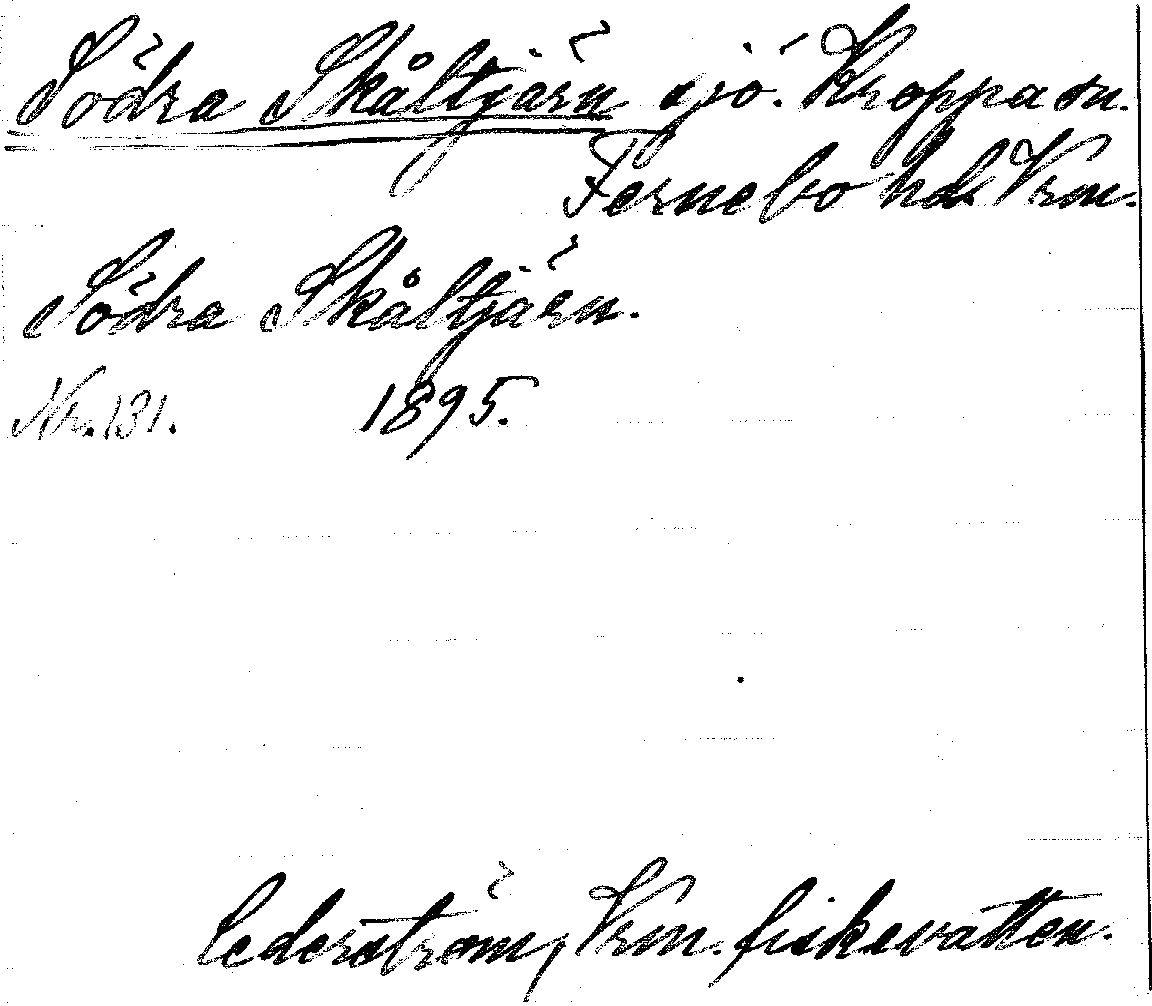 Södra Skåltjärn sjö. Kroppa sn.
Fernebo hd. Vrm.
Södra Skåltjärn.
Nr. 131. 1895.
Cederström, Vrm. fiskevatten.